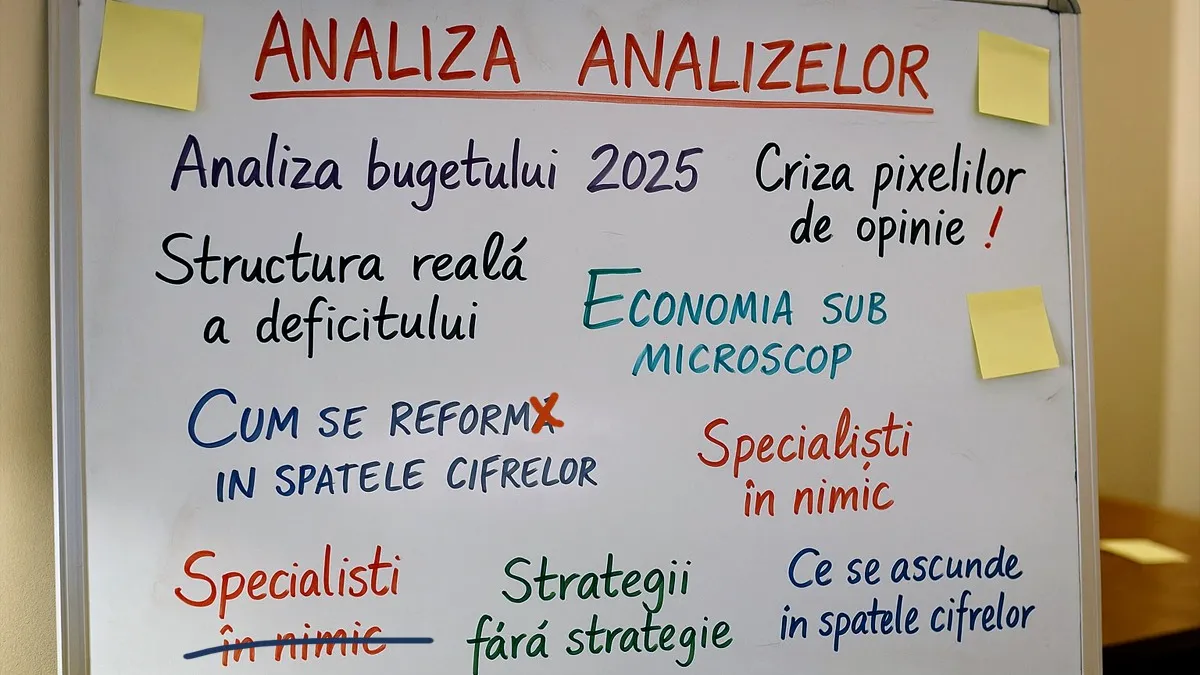 ANALIZA ANALIZELOR
Analiza bugetului 2025
Criza pixelilor
de opinie !
Structura reală
a deficitului
ECONOMIA SUB
MICROSCOP
CUM SE REFORMA
IN SPATELE CIFRELOR
Specialiști
în nimic
Specialisti
în nimic
Strategii
fără strategie
Ce se ascunde
in spatele cifrelor